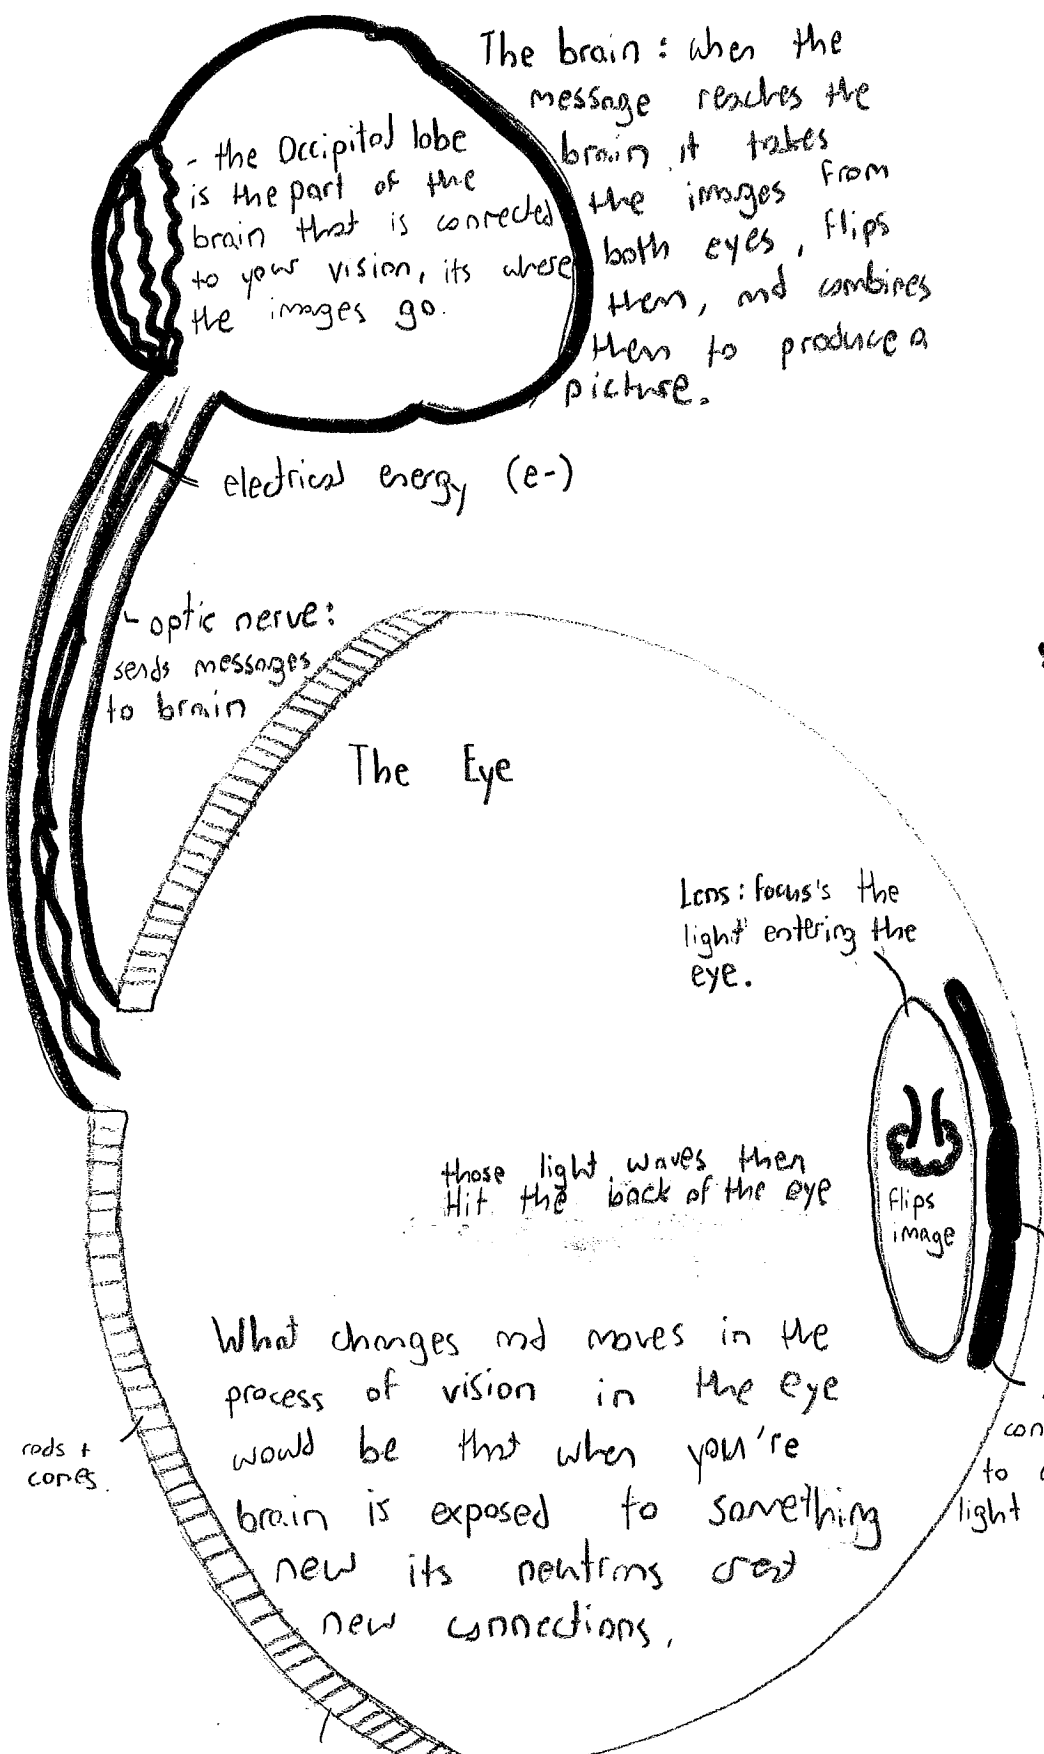 The brain : when the
message reaches the
brain it takes
the images from
both eyes, flips
them, and combines
them to produce a
picture.
- the Occipital lobe
is the part of the
brain that is connected
to your vision, its where
the images go.
electrical energy (e-)
- optic nerve:
sends messages
to brain
The Eye
Lens : focus's the
light entering the
eye.
those light waves then
Hit the back of the eye
flips
image
What changes and moves in the
process of vision in the eye
would be that when you're
brain is exposed to something
new its neutrons creat
new connections.
rods +
cones.
con
to
light